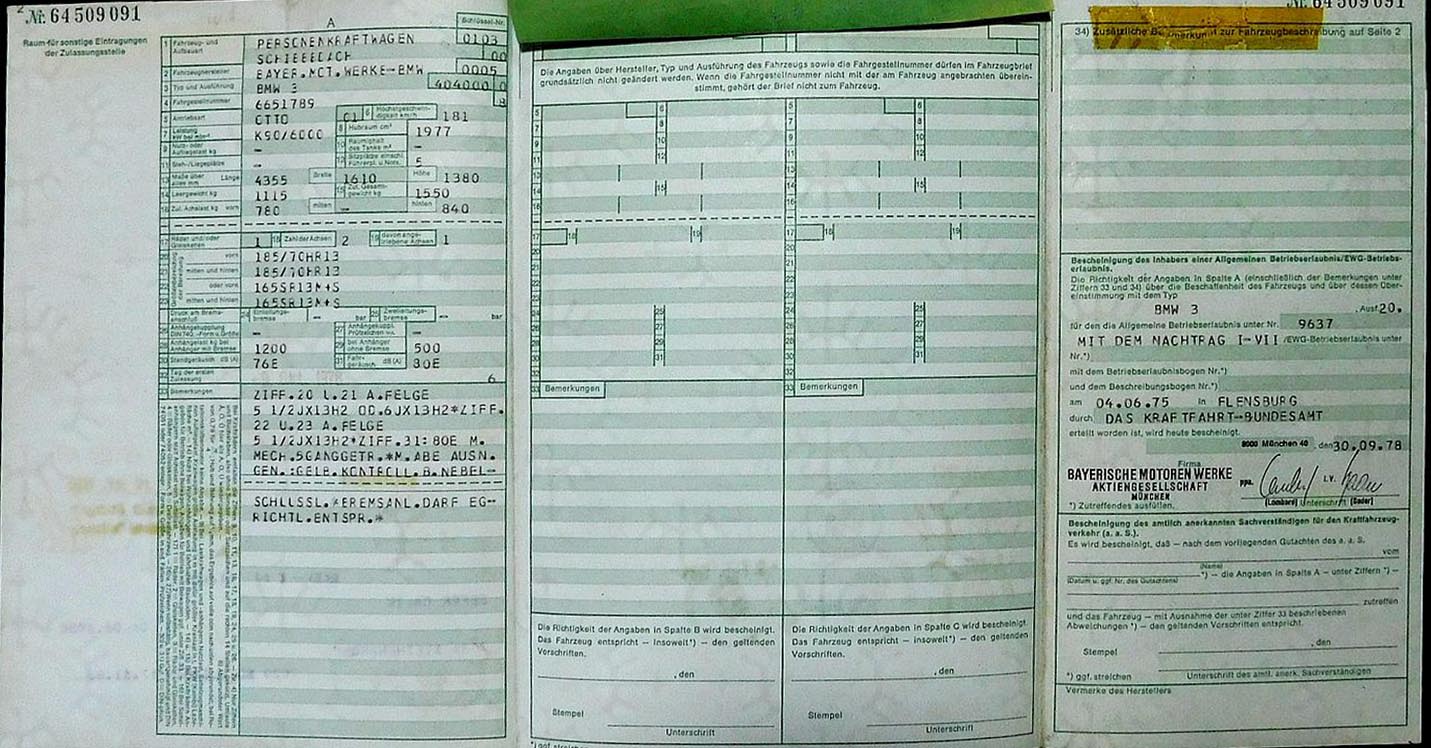 2 Nr. 64509091
Raum für sonstige Eintragungen
der Zulassungsstelle
A
Schlüssel-Nr.
1 Fahrzeug- und Aufbauart PERSONENKRAFTWAGEN 0103
00
2 Fahrzeughersteller BAYER.MOT.WERKE-BMW 0005
3 Typ und Ausführung BMW 3 404000
4 Fahrgestellnummer 6651789
5 Antriebsart OTTO 01 6 Höchstgeschwindigkeit km/h 181
7 Leistung K90/6000 8 Hubraum cm³ 1977
9 Nutz- oder Aufliegelast kg - 10 Rauminhalt des Tanks m³ -
11 Steh-/Liegeplätze - 12 Sitzplätze einschl. Führerpl. u. Nots. 5
13 Maße über alles mm Länge 4355 Breite 1610 Höhe 1380
14 Leergewicht kg 1115 15 Zul. Gesamtgewicht kg 1550
16 Zul. Achslast kg vorn 780 mitten - hinten 840
17 Räder und/oder Gleisketten 1 18 Zahl der Achsen 2 19 davon angetriebene Achsen 1
20 vorn 185/70HR13
21 mitten und hinten 185/70HR13
22 oder vorn 165SR13M+S
23 mitten und hinten 165SR13M+S
Druck am Bremsanschluß 24 Einleitungsbremse - bar 25 Zweileitungsbremse - bar
26 Anhängekupplung DIN 740.. Form u. Größe - 27 Anhängekuppl. Prüfzeichen -
28 Anhängelast kg bei Anhänger mit Bremse 1200 29 bei Anhänger ohne Bremse 500
30 Standgeräusch dB (A) 76E 31 Fahrgeräusch dB (A) 80E
32 Tag der ersten Zulassung 6
33 Bemerkungen ZIFF.20 U.21 A.FELGE
5 1/2JX13H2 OD.6JX13H2*ZIFF.
22 U.23 A.FELGE
5 1/2JX13H2*ZIFF.31:80E M.
MECH.5GANGGETR.*M.ABE AUSN.
GEN.:GELB.KONTROLL.B.NEBEL-
SCHLUSSL.*BREMSANL.DARF EG-
RICHTL.ENTSPR.*
Die Angaben über Hersteller, Typ und Ausführung des Fahrzeugs sowie die Fahrgestellnummer dürfen im Fahrzeugbrief
grundsätzlich nicht geändert werden. Wenn die Fahrgestellnummer nicht mit der am Fahrzeug angebrachten überein-
stimmt, gehört der Brief nicht zum Fahrzeug.
5 6 5 6
7 8 7 8
9 10 9 10
11 12 11 12
13 13
14 15 14 15
16 16
17 18 19 17 18 19
20 20
21 21
22 22
23 23
24 25 24 25
26 27 26 27
28 29 28 29
30 31 30 31
32 32
33 Bemerkungen 33 Bemerkungen
Die Richtigkeit der Angaben in Spalte B wird bescheinigt.
Das Fahrzeug entspricht – insoweit*) – den geltenden
Vorschriften.
, den
Stempel
Unterschrift
*) ggf. streichen
Die Richtigkeit der Angaben in Spalte C wird bescheinigt.
Das Fahrzeug entspricht – insoweit*) – den geltenden
Vorschriften.
, den
Stempel
Unterschrift
Nr. 64509091
34) Zusätzliche Bemerkungen zur Fahrzeugbeschreibung auf Seite 2
Bescheinigung des Inhabers einer Allgemeinen Betriebserlaubnis/EWG-Betriebs-
erlaubnis.
Die Richtigkeit der Angaben in Spalte A (einschließlich der Bemerkungen unter
Ziffern 33 und 34) über die Beschaffenheit des Fahrzeugs und über dessen Über-
einstimmung mit dem Typ
BMW 3 , Ausf 20.
für den die Allgemeine Betriebserlaubnis unter Nr. 9637
MIT DEM NACHTRAG I-VII /EWG-Betriebserlaubnis unter
Nr.*)
mit dem Betriebserlaubnisbogen Nr.*)
und dem Beschreibungsbogen Nr.*)
am 04.06.75 in FLENSBURG
durch DAS KRAFTFAHRT-BUNDESAMT
erteilt worden ist, wird heute bescheinigt.
8000 München 40 , den 30.09.78
Firma
BAYERISCHE MOTOREN WERKE
AKTIENGESELLSCHAFT
MÜNCHEN
ppa. i.V.
(Lombard) Unterschrift (Bader)
*) Zutreffendes ausfüllen.
Bescheinigung des amtlich anerkannten Sachverständigen für den Kraftfahrzeug-
verkehr (a. a. S.).
Es wird bescheinigt, daß – nach dem vorliegenden Gutachten des a. a. S.
vom
(Name)
*) – die Angaben in Spalte A – unter Ziffern *) –
(Datum u. ggf. Nr. des Gutachtens)
zutreffen
und das Fahrzeug – mit Ausnahme der unter Ziffer 33 beschriebenen
Abweichungen *) – den geltenden Vorschriften entspricht.
, den
Stempel
*) ggf. streichen Unterschrift des amtl. anerk. Sachverständigen
Vermerke des Herstellers